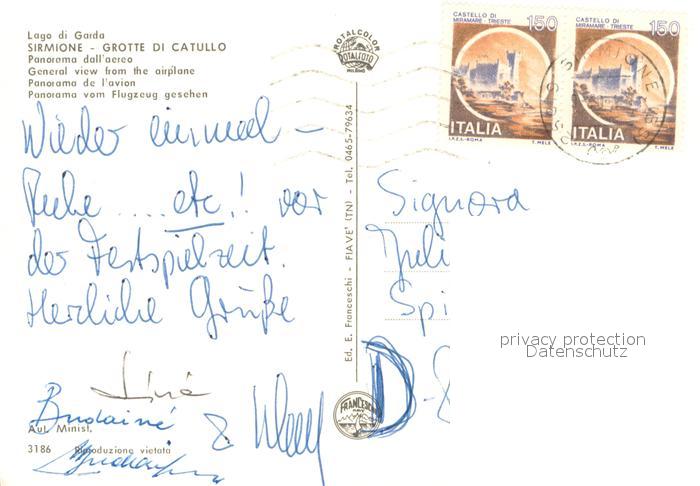 Lago di Garda
SIRMIONE - GROTTE DI CATULLO
Panorama dall'aereo
General view from the airplane
Panorama de l'avion
Panorama vom Flugzeug gesehen
ROTALCOLOR
ROTALFOTO
MILANO
CASTELLO DI
MIRAMARE - TRIESTE
150
ITALIA
I.P.Z.S.-ROMA
T. MELE
CASTELLO DI
MIRAMARE - TRIESTE
150
ITALIA
I.P.Z.S.-ROMA
T. MELE
SIRMIONE
Wieder einmal –
Ruhe .... etc.! vor
der Festspielzeit.
Herzliche Grüße
Ed. E. Franceschi - FIAVE' (TN) - Tel. 0465-79634
Signora
Juli
Spi
D-8
privacy protection
Datenschutz
FRANCESCHI
&
Aut. Minist.
3186 Riproduzione vietata